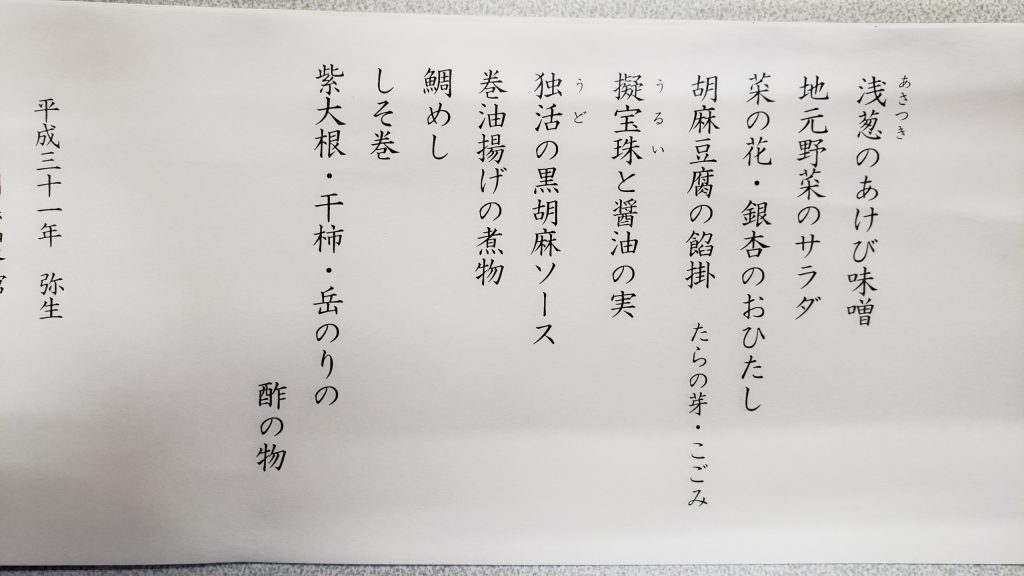 浅葱のあけび味噌
あさつき
地元野菜のサラダ
菜の花・銀杏のおひたし
胡麻豆腐の餡掛　たらの芽・こごみ
擬宝珠と醤油の実
うるい
独活の黒胡麻ソース
うど
巻油揚げの煮物
鯛めし
しそ巻
紫大根・干柿・岳のりの
酢の物
平成三十一年　弥生